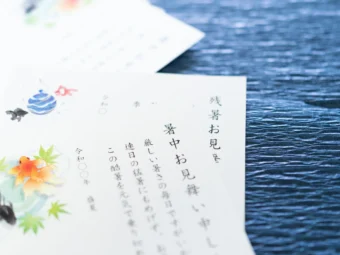 残暑お見
暑中お見舞い申し
厳しい暑さの毎日ですがいか
連日の猛暑にもめげず、お
この酷暑を元気で乗り切
令和〇〇年 盛夏
令和〇